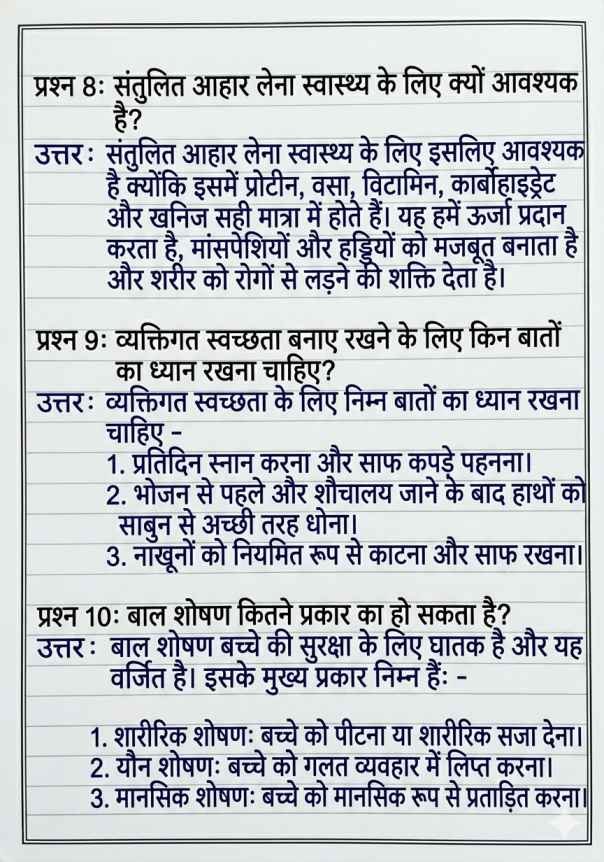 प्रश्न 8: संतुलित आहार लेना स्वास्थ्य के लिए क्यों आवश्यक
है?
उत्तर: संतुलित आहार लेना स्वास्थ्य के लिए इसलिए आवश्यक
है क्योंकि इसमें प्रोटीन, वसा, विटामिन, कार्बोहाइड्रेट
और खनिज सही मात्रा में होते हैं। यह हमें ऊर्जा प्रदान
करता है, मांसपेशियों और हड्डियों को मजबूत बनाता है
और शरीर को रोगों से लड़ने की शक्ति देता है।
प्रश्न 9: व्यक्तिगत स्वच्छता बनाए रखने के लिए किन बातों
का ध्यान रखना चाहिए?
उत्तर: व्यक्तिगत स्वच्छता के लिए निम्न बातों का ध्यान रखना
चाहिए –
1. प्रतिदिन स्नान करना और साफ कपड़े पहनना।
2. भोजन से पहले और शौचालय जाने के बाद हाथों को
साबुन से अच्छी तरह धोना।
3. नाखूनों को नियमित रूप से काटना और साफ रखना।
प्रश्न 10: बाल शोषण कितने प्रकार का हो सकता है?
उत्तर: बाल शोषण बच्चे की सुरक्षा के लिए घातक है और यह
वर्जित है। इसके मुख्य प्रकार निम्न हैं: -
1. शारीरिक शोषण: बच्चे को पीटना या शारीरिक सजा देना।
2. यौन शोषण: बच्चे को गलत व्यवहार में लिप्त करना।
3. मानसिक शोषण: बच्चे को मानसिक रूप से प्रताड़ित करना।